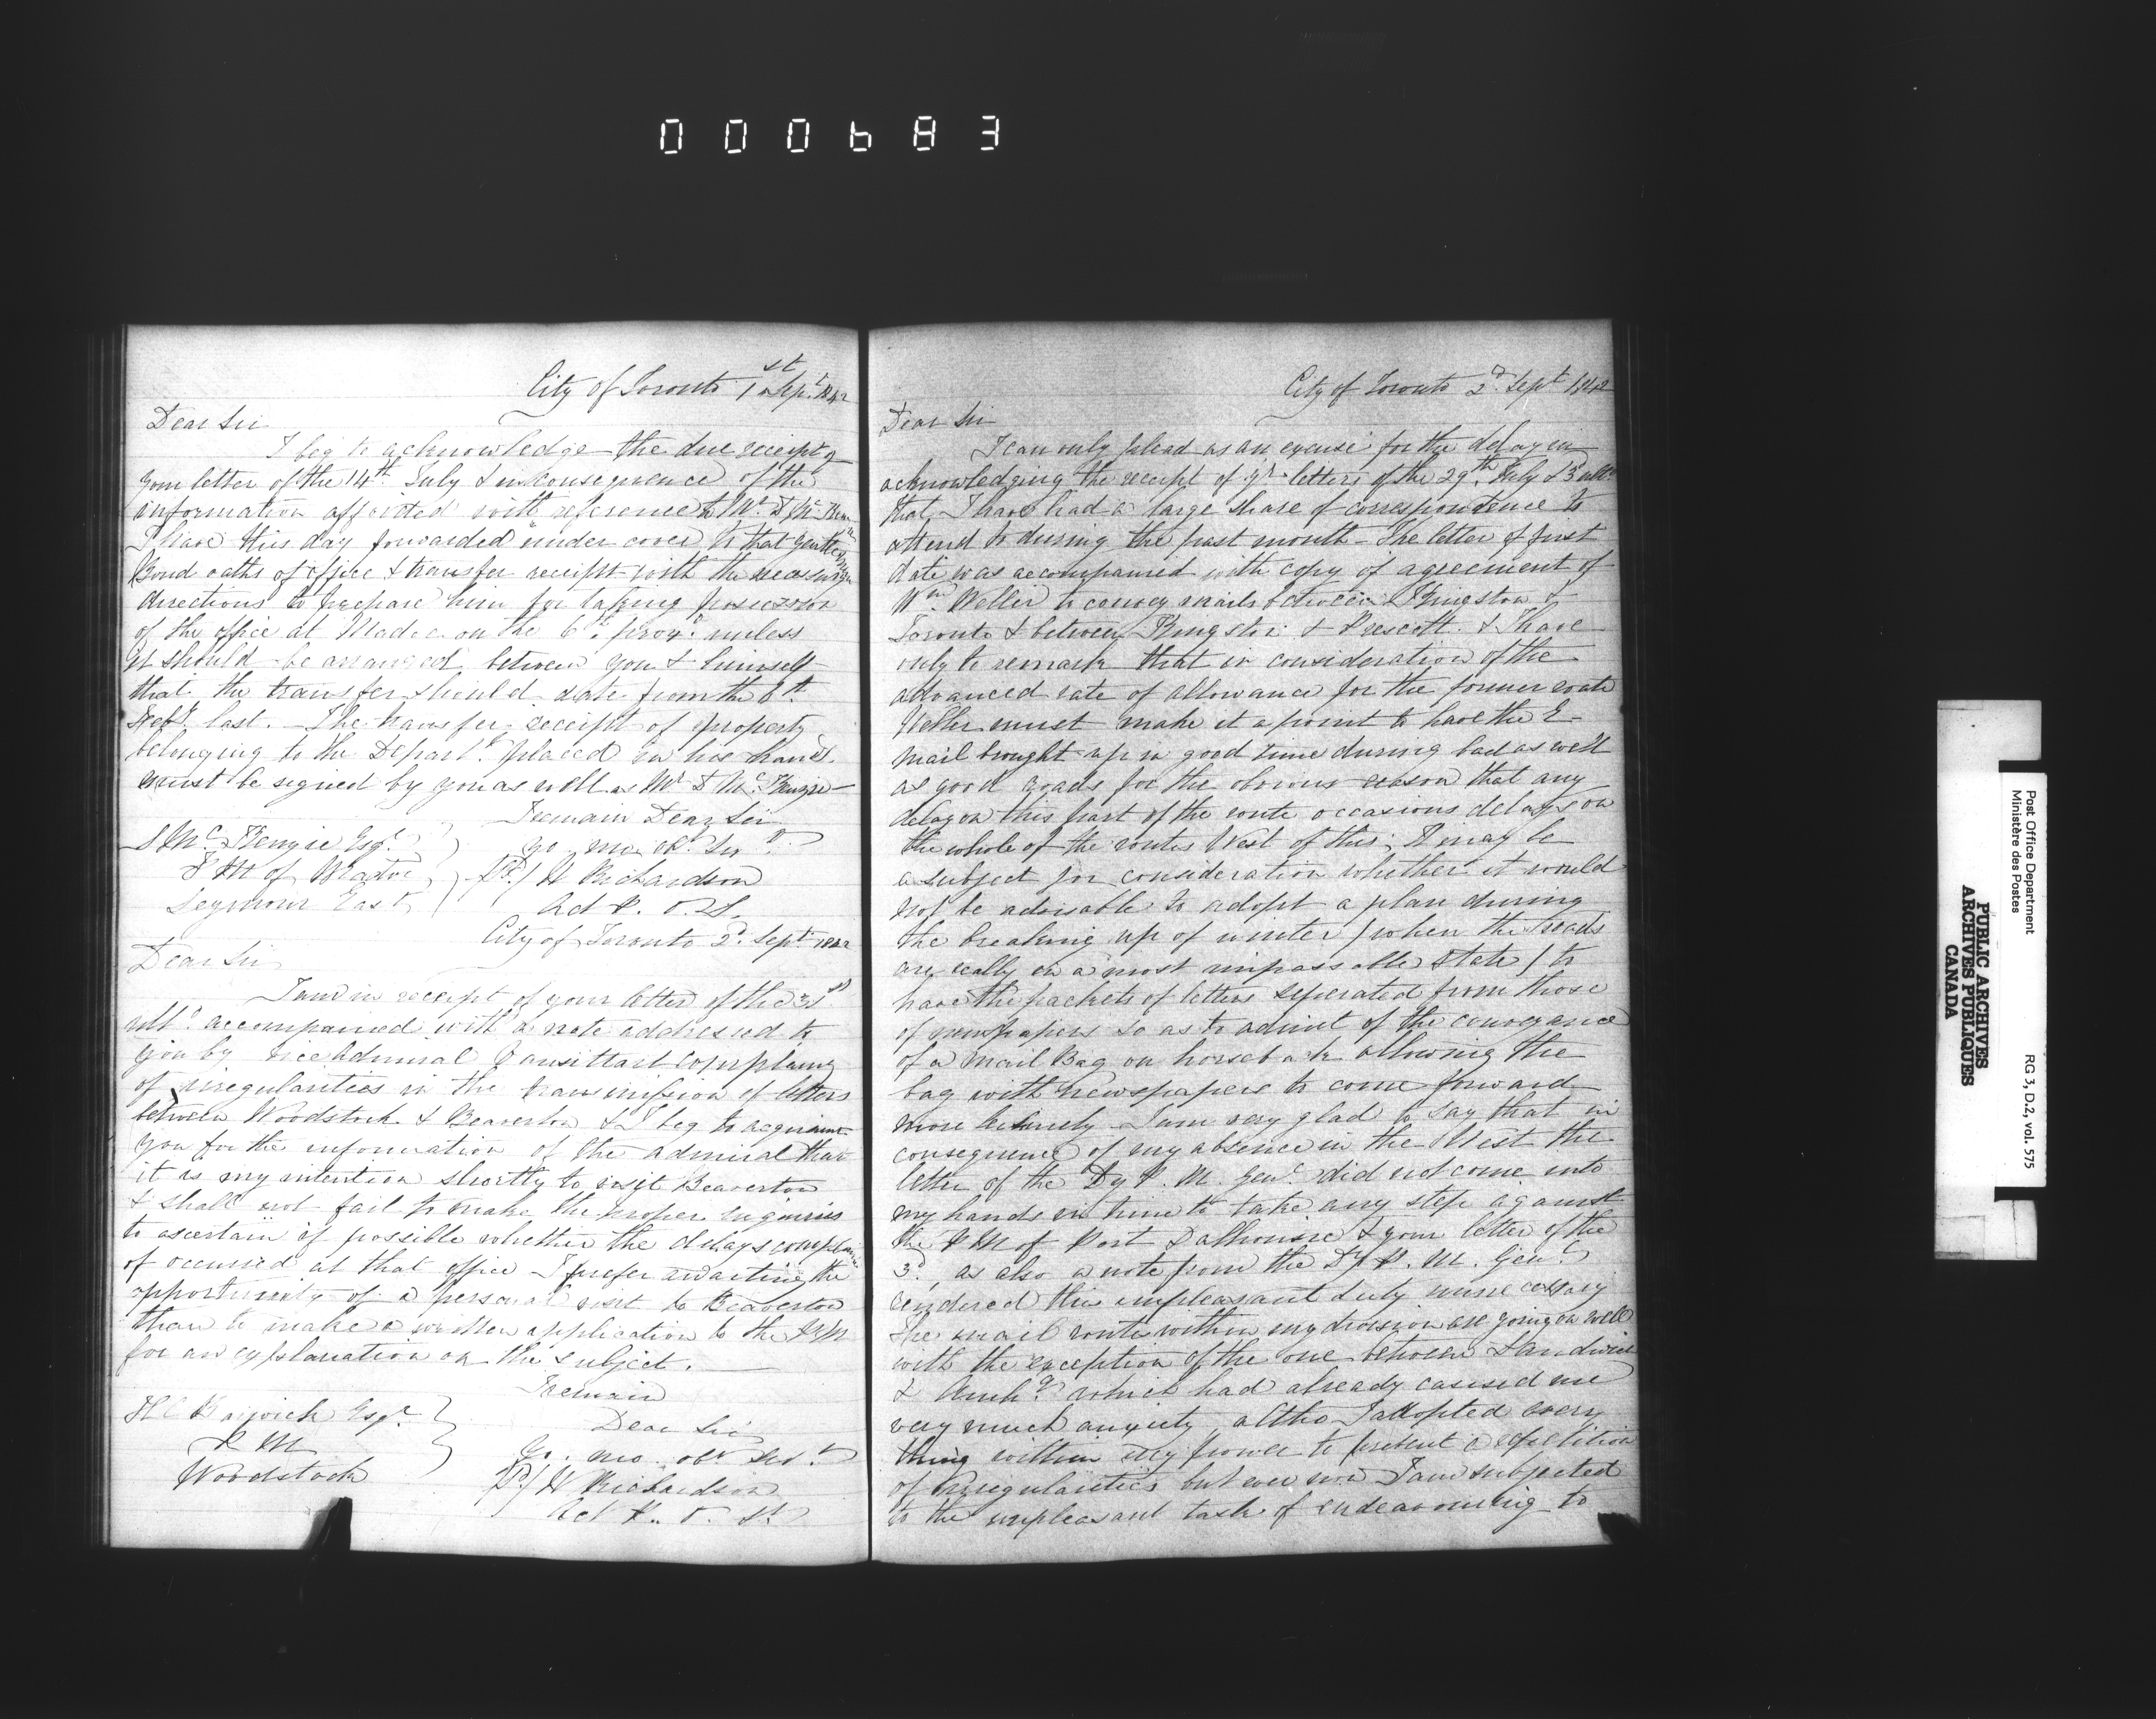 000683
City of Toronto 1st Sept. 1842
Dear Sir
I beg to acknowledge the due receipt of
your letter of the 14th July & in consequence of the
information afforded with reference to Mr. D Mc Kenzie
I have this day forwarded under cover to that gentleman
Bond oaths of office & transfer receipt with the necessary
directions to prepare him for taking possession
of the office at Madoc on the 6th proxo. unless
it should be arranged between you & himself
that the transfer should date from the 6th
last. The transfer receipt of property
belonging to the Departt. placed in his hands
must be signed by you as well as Mr. D Mc. Kenzie
I remain Dear Sir
S Mc. Kenzie Esqr.
Yo. mo. ob. Sert.
P M of Madoc
(Sd.) H Richardson
Seymour East
Act P. O. S.
City of Toronto 2d. Sept. 1842
Dear Sir
I am in receipt of your letter of the 31st
ulto. accompanied with a note addressed to
you by vice Admiral Vansittart complaing
of irregularities in the transmission of letters
between Woodstock & Beaverton & I beg to acquaint
you for the information of the admiral that
it is my intention shortly to visit Beaverton
& shall not fail to make the proper inquiries
to ascertain if possible whether the delays complained
of occurred at that office I prefer awaiting the
opportunity of a personal visit to Beaverton
than to make a written application to the P M
for an explanation on the subject.
I remain
H C Barwick Esqr.
Dear Sir
P M
Yo. mo. obt. Sert.
Woodstock
(Sd) H Richardson
Act P. O. S.
City of Toronto 2d. Sept 1842
Dear Sir
I can only plead as an excuse for the delay in
acknowledging the receipt of yr. letters of the 29th July & 3d ulto.
that I have had a large share of correspondence to
attend to during the past month - The letter of first
date was accompanied with copy of agreement of
Wm. Weller to convey mails between Kingston &
Toronto & between Kingston & Prescott. & I have
only to remark that in consideration of the
advanced rate of allowance for the former route
Weller must make it a point to have the E-
mail brought up in good time during bad as well
as good roads for the obvious reason that any
delay on this part of the route occasions delays on
the whole of the routes West of this; It may be
a subject for consideration whether it would
not be advisable to adopt a plan during
the breaking up of winter / when the roads
are really in a most impassable state / to
have the packets of letters seperated from those
of newspapers so as to admit of the conveyance
of a mail Bag on horseback allowing the
bag with newspapers to come forward
more leisurely - I am very glad to say that in
consequence of my absence in the West the
letter of the Dy P. M. Genl. did not come into
my hands in time to take any step against
the P M of Port Dalhousie & your letter of the
3d, as also a note from the Dy P. M. Genl.
rendered this unpleasant duty unnecessary
The mail routes within my division are going on well
with the exception of the one between Sandwich
& Amhg. which had already caused me
very much anxiety, altho I adopted every
thing within my power to prevent a repetition
of irregularities but even now I am subjected
to the unpleasant task of endeavouring to
PUBLIC ARCHIVES
ARCHIVES PUBLIQUES
CANADA
Post Office Department
Ministère des Postes
RG 3, D.2, vol. 575